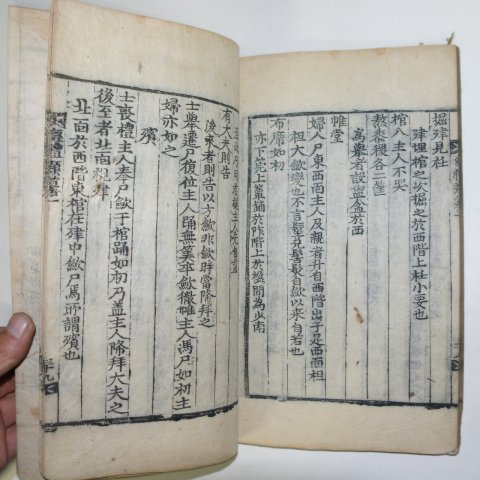 掘肂見衽
肂埋棺之坎掘之於西階上衽小要也
棺入主人不哭
熬黍稷各二筐
為擧者設盥盆於西
帷堂
婦人尸東西面主人及親者升自西階出于足西面袒
袒大斂變也不言髽免髺髮自斂以來自若也
布席如初
亦下莞上簟鋪於阼階上於楹間為少南
有大夫則告
後來者則告以方斂非斂時當降拜之
士擧遷尸復位主人踊無筭卒斂徹帷主人馮尸如初主
婦亦如之
殯
士喪禮主人奉尸斂于棺踊如初乃盖主人降拜大夫之
後至者北面視肂
北面於西階東棺在肂中斂尸焉所謂殯也